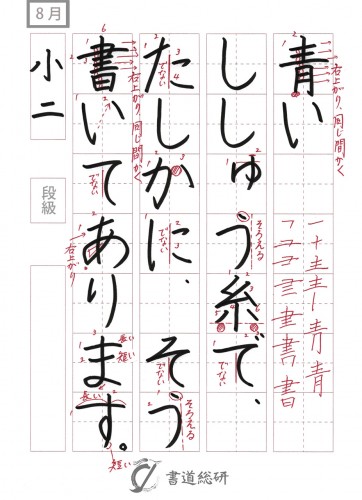 8月
小二
段級
青い
右上がり、同じ間かく
ししゅう糸で、
そろえる
でない
たしかに、そう
でない
でない
でない
そろえる
書いてあります。
右上がり、同じ間かく
でない
右上がり
長い
短い
長い
短い
書道総研